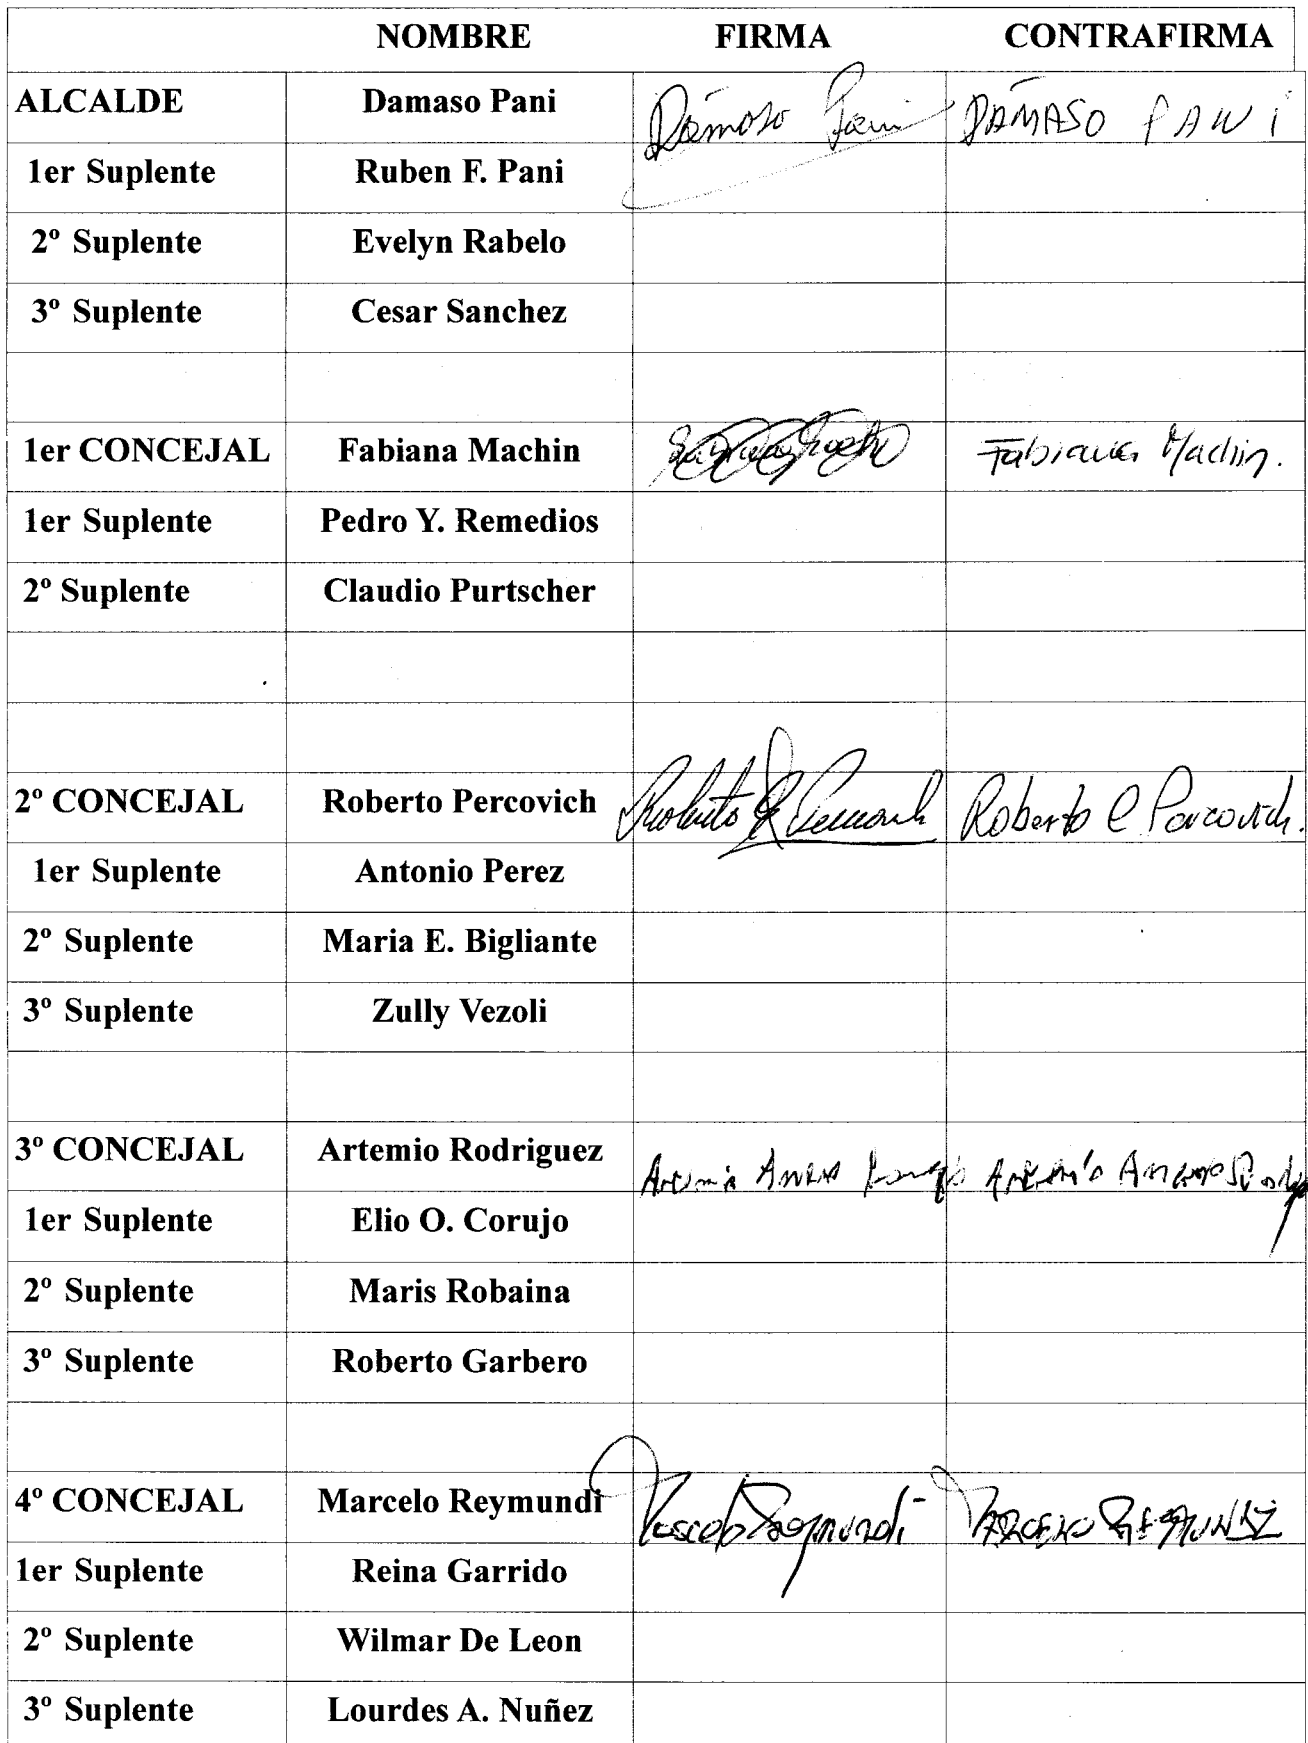 NOMBRE FIRMA CONTRAFIRMA
ALCALDE Damaso Pani Dámaso Pani DAMASO PANI
1er Suplente Ruben F. Pani
2º Suplente Evelyn Rabelo
3º Suplente Cesar Sanchez
1er CONCEJAL Fabiana Machin Fabiana Machin.
1er Suplente Pedro Y. Remedios
2º Suplente Claudio Purtscher
2º CONCEJAL Roberto Percovich Roberto Roberto C Percovich.
1er Suplente Antonio Perez
2º Suplente Maria E. Bigliante
3º Suplente Zully Vezoli
3º CONCEJAL Artemio Rodriguez Artemio
1er Suplente Elio O. Corujo
2º Suplente Maris Robaina
3º Suplente Roberto Garbero
4º CONCEJAL Marcelo Reymundi Marcelo Reymundi MARCELO REYMUNDI
1er Suplente Reina Garrido
2º Suplente Wilmar De Leon
3º Suplente Lourdes A. Nuñez